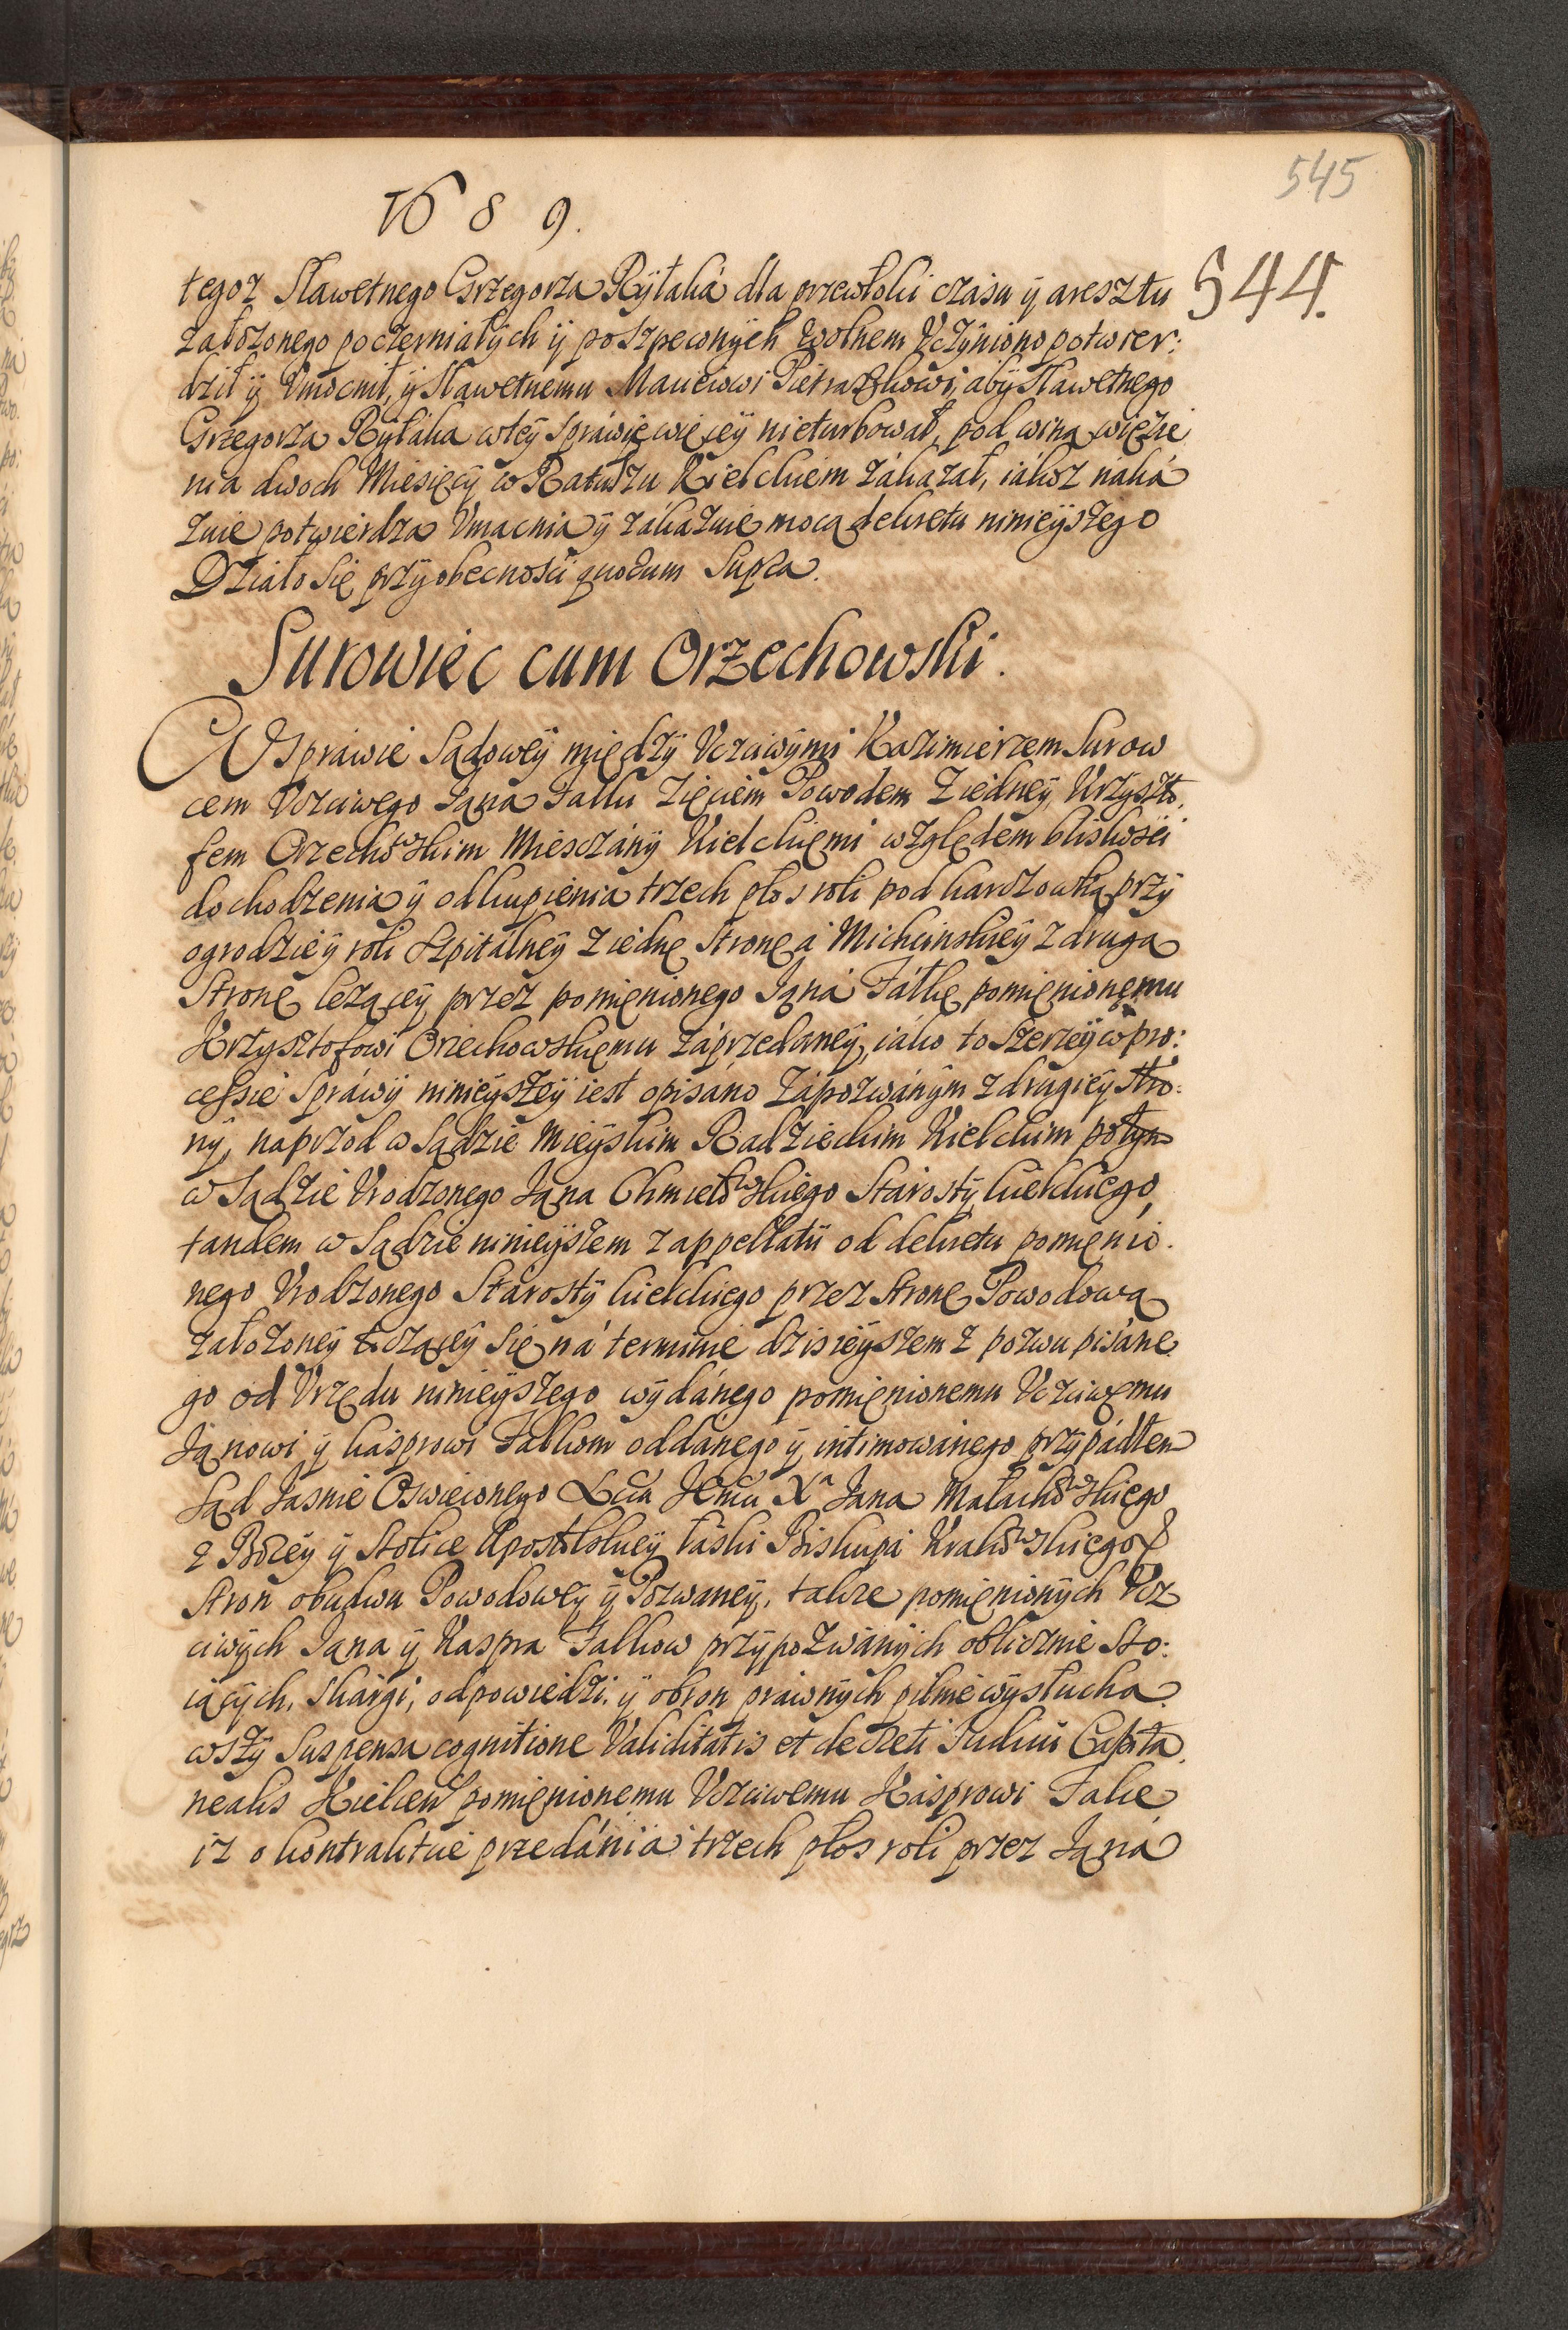 545
1689.
544.
tegoz Sławetnego Grzegorza Rÿtaká dla przewłoki czasu ÿ aresztu
załozonego poczerniałÿch ÿ poszpeconÿch wolnem Vczÿniono potwier:
dził ÿ Vmocnił, ÿ Sławetnemu Maciéiowi Pietraszkowi, abÿ Sławetnego
Grzegorza Rÿtáka wteÿ spráwię więceÿ nieturbował, pod winą więzie
nia dwoch Miesięcÿ w Ratuszu Kielckiem zákazał, iákoz náka
zuie potwierdza Vmacnia ÿ zákazuie mocą dekretu ninieÿszego
Działo Się przÿ obecnosci quorum Supra.
Surowiec cum Orzechowski.
W Spráwie Sądoweÿ międzÿ Vczciwÿmi Kazimierzem Surow
cem Vczciwego Jana Fałki Zięciem Powodem Ziedneÿ, Krzyszto
fem Orzechowskim Miesczánÿ Kielckiemi względem bliskosći
dochodzenia ÿ odkupienia trzech płos roli pod karczowką przÿ
ogrodzie ÿ roli Szpitálneÿ Ziednę Stronę á Michcinskieÿ z drugą
Stronę lezącęÿ przez pomięnionego Janá Fáłkę pomięnionęmu
Krzysztofowi Orzechowskięmu záprzedáneÿ, iáko to Szerzeÿ w pro:
cessie Spráwÿ ninieÿszeÿ iest opisáno Zápozwánÿm z drugieÿ Stro:
nÿ, naprzod w Sądzie Mieÿskim Radzieckim Kielckim potÿm
w Sądzie Vrodzonego Jana Chmielowskiego Stárostÿ kielckiego,
tandem w Sądzie ninieÿszem z appellatÿi od dekretu pomięnio.
nego Vrodzonego Stárostÿ kielckiego przez Stronę Powodową
załozoneÿ toczącęÿ Się ná terminie dzisieÿszem z pozwu pisáne
go od Vrzędu ninieÿszego wÿdánego pomięnionemu Vczciwęmu
Janowi ÿ káśprowi Fałkom oddánego ÿ intimowánego przÿpádłem
Sąd Jasnie Oswieconego Jana Małachowskiego
z Bozeÿ ÿ Stolice Apostolskieÿ łaski Biskupá Krakowskiego
Stron obudwu Powodowęÿ ÿ Pozwaneÿ, takze pomięnionÿch Vcz
ciwÿch Jana ÿ Kaspra Fałkow przÿpozwánÿch oblicznie Sto:
iącÿch, Skárgi, odpowiedzi ÿ obron práwnÿch pilnie wÿsłucha
wszÿ Suspensa cognitione Validitatis et decreti Iudicii Capita
nealis Kielcen pomięnionemu Vczciwemu Káśprowi Fałce
iz o kontraktuie przedánia trzech płos roli przez Janá